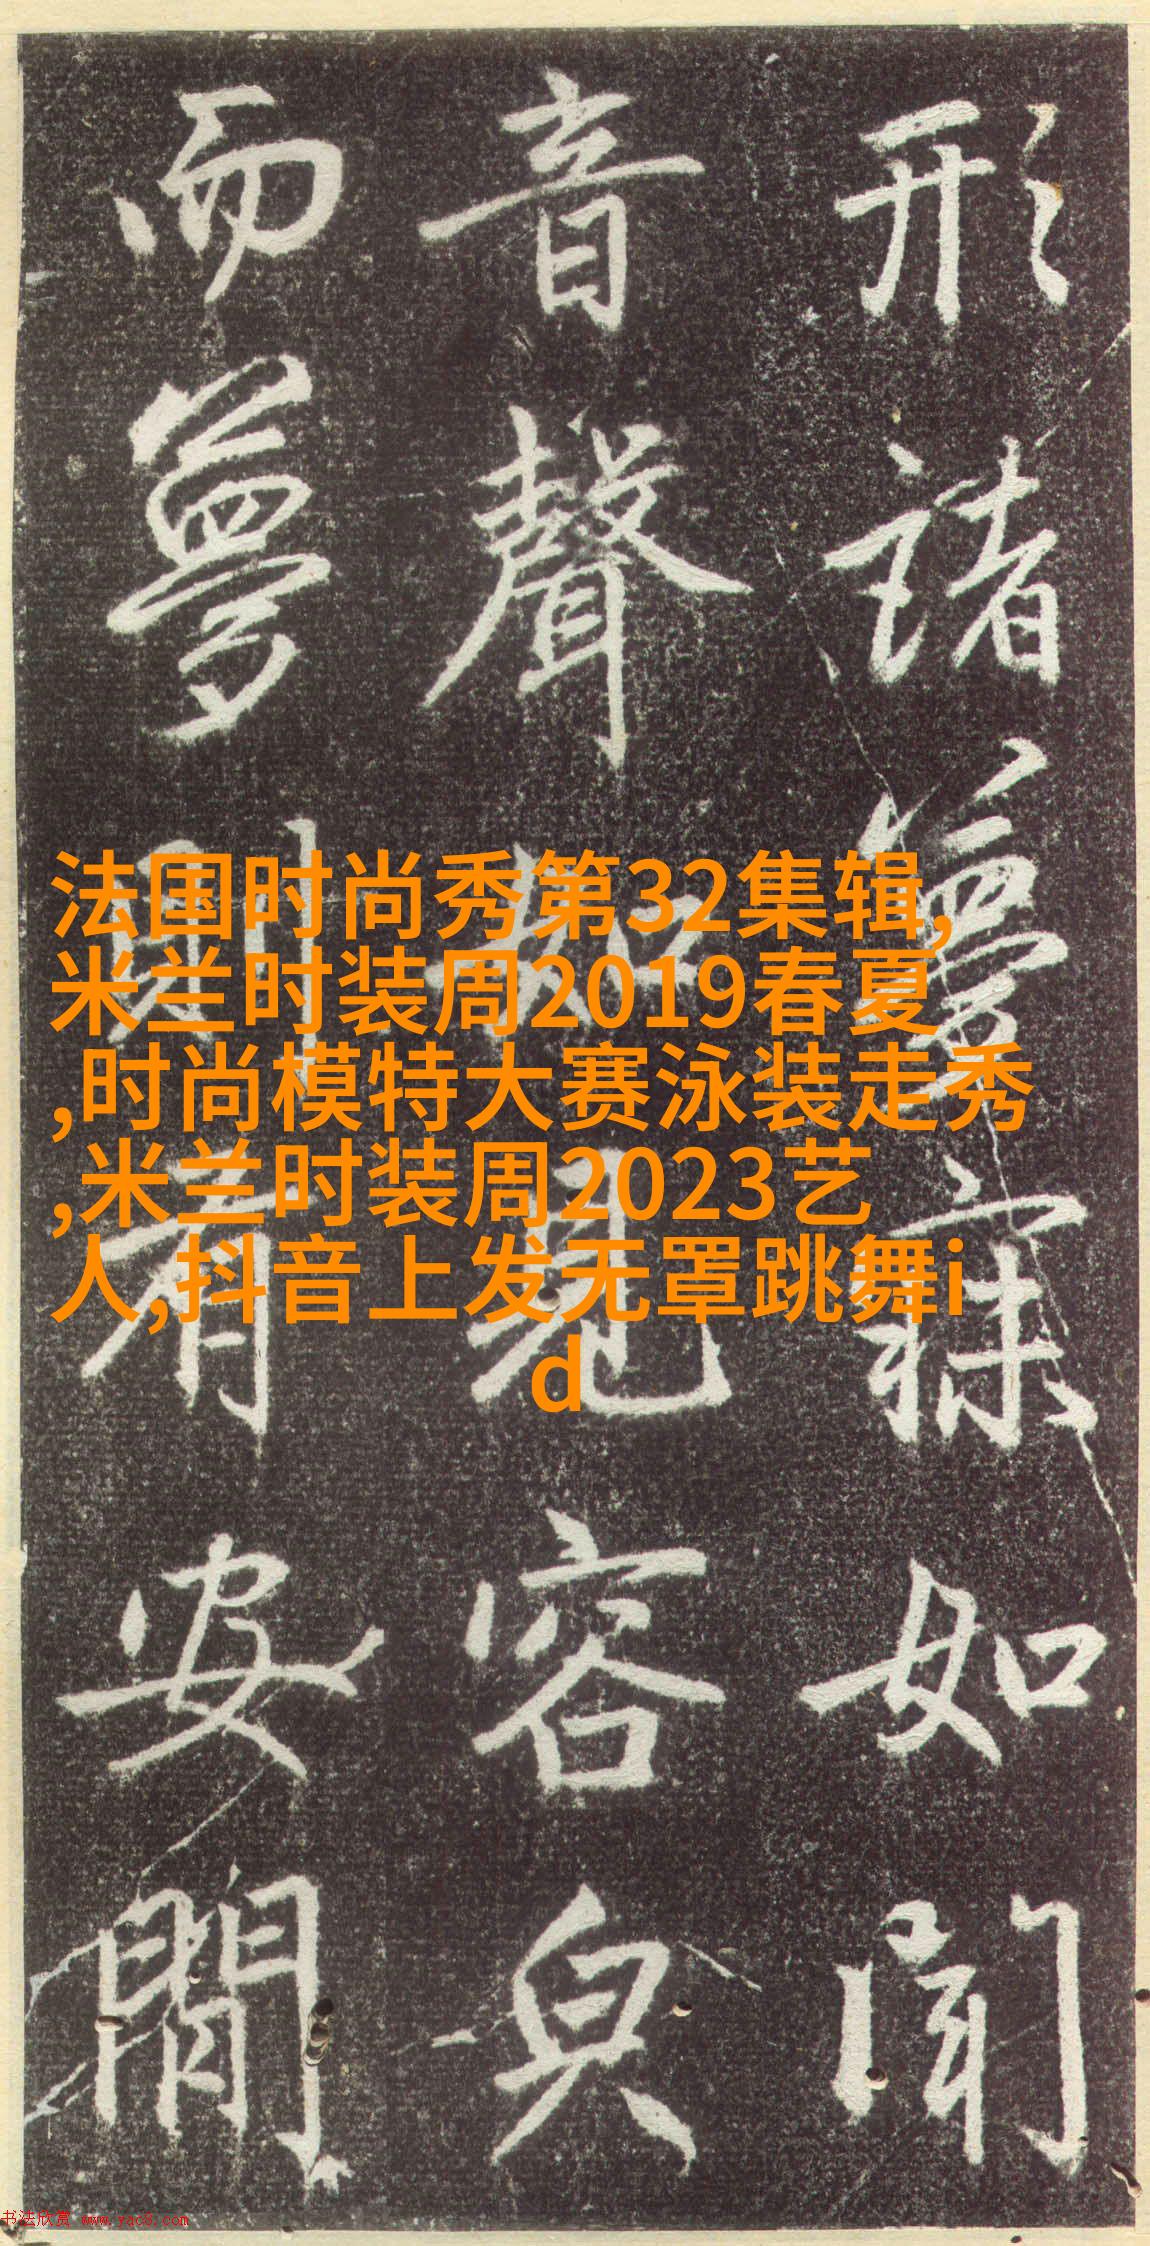 形諸夢寐如聞
音聲如見容皃
而夢則有安閒
法国时尚秀第32集辑,
米兰时装周2019春夏
,时尚模特大赛泳装走秀
,米兰时装周2023艺
人,抖音上发无罩跳舞i
d
书法欣赏 www.yac8.com